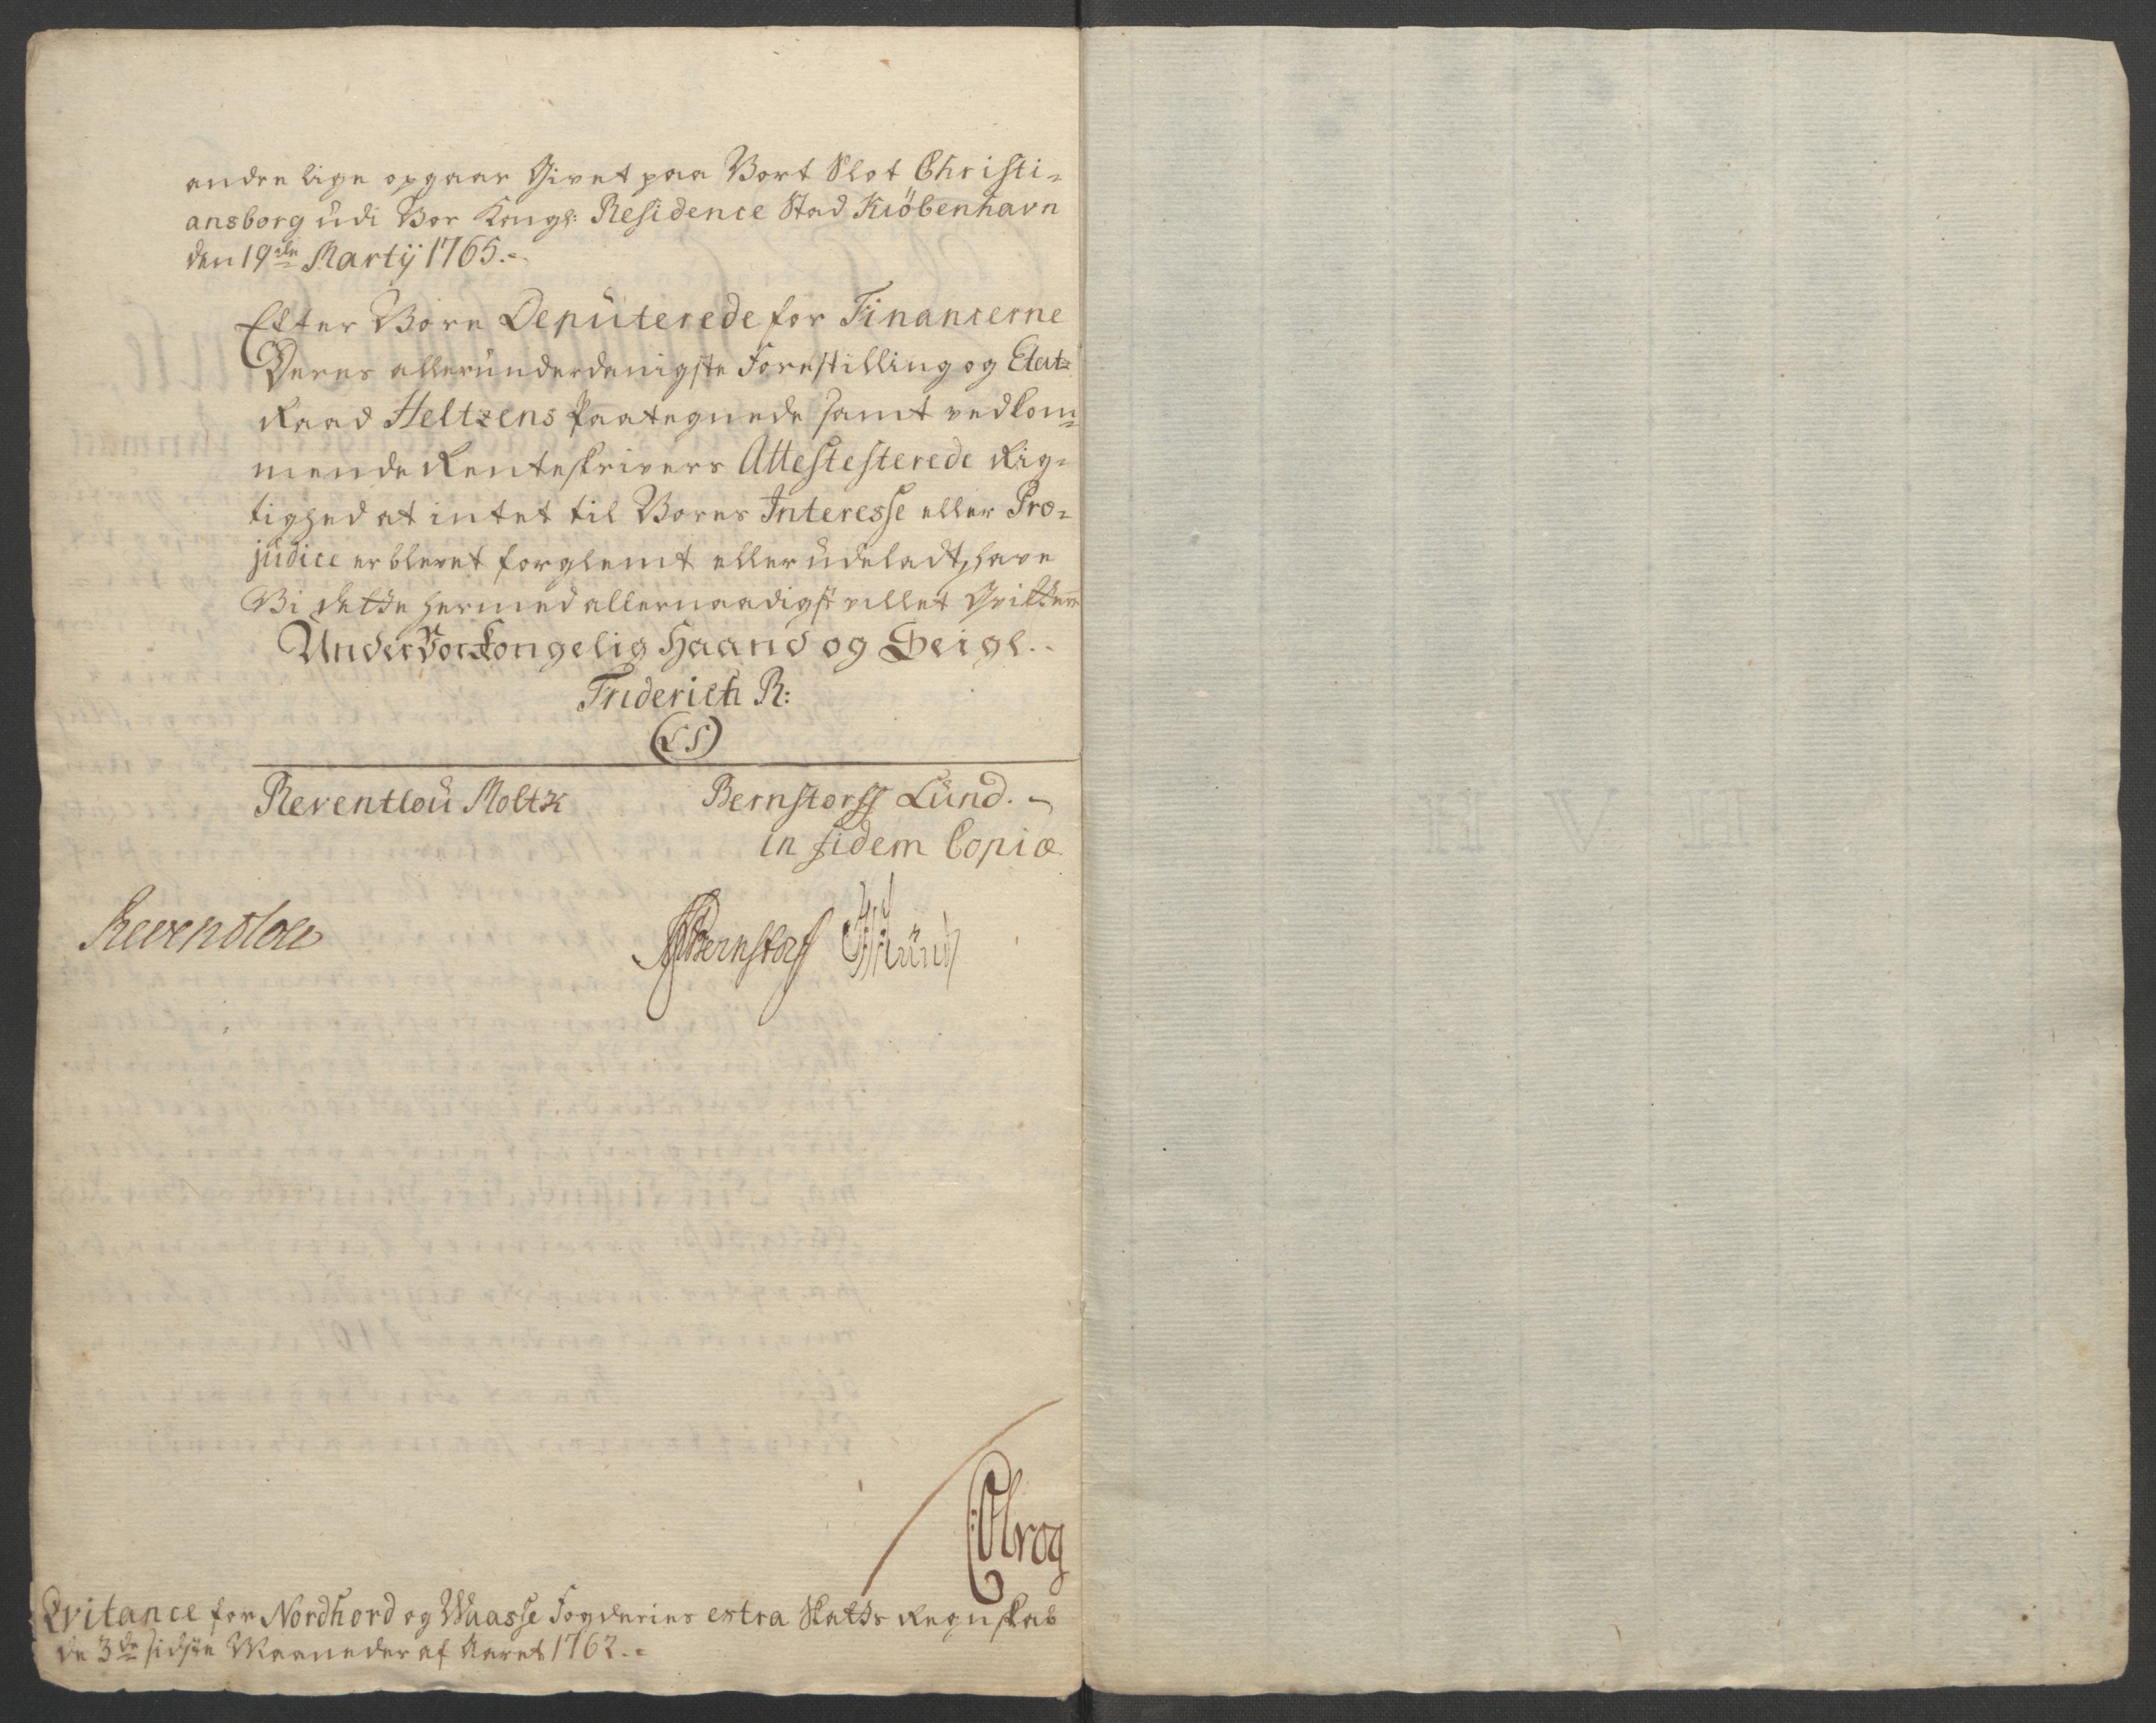 andre lige opgaar Givet paa Vort Slot Christi=
ansborg udi Vor Kongl: Residence Stad Kiöbenhavn
den 19de Martÿ 1765.
Efter Vore Deputerede for Financerne
Deres allerunderdanigste Forestilling og Etat=
Raad Heltzens Paategnede samt vedkom=
mende Renteskrivers Attestesterede Rig=
tighed at intet til Vores Interesse eller Præ=
judice er blevet forglemt eller udeladt, have
Vi dette hermed allernaadigst villet Qvittere
Under Vor Kongelig Haand og Seigl.
Friderich R:
(LS)
Reventlou Moltke Bernstorff Lund.
in fidem Copiæ
Reventlou Bernstorff Lund
Qvitance for Nordhord og Waasse Fogderies extra Skatts Regnskab
de 3de sidste Maaneder af Aaret 1762.